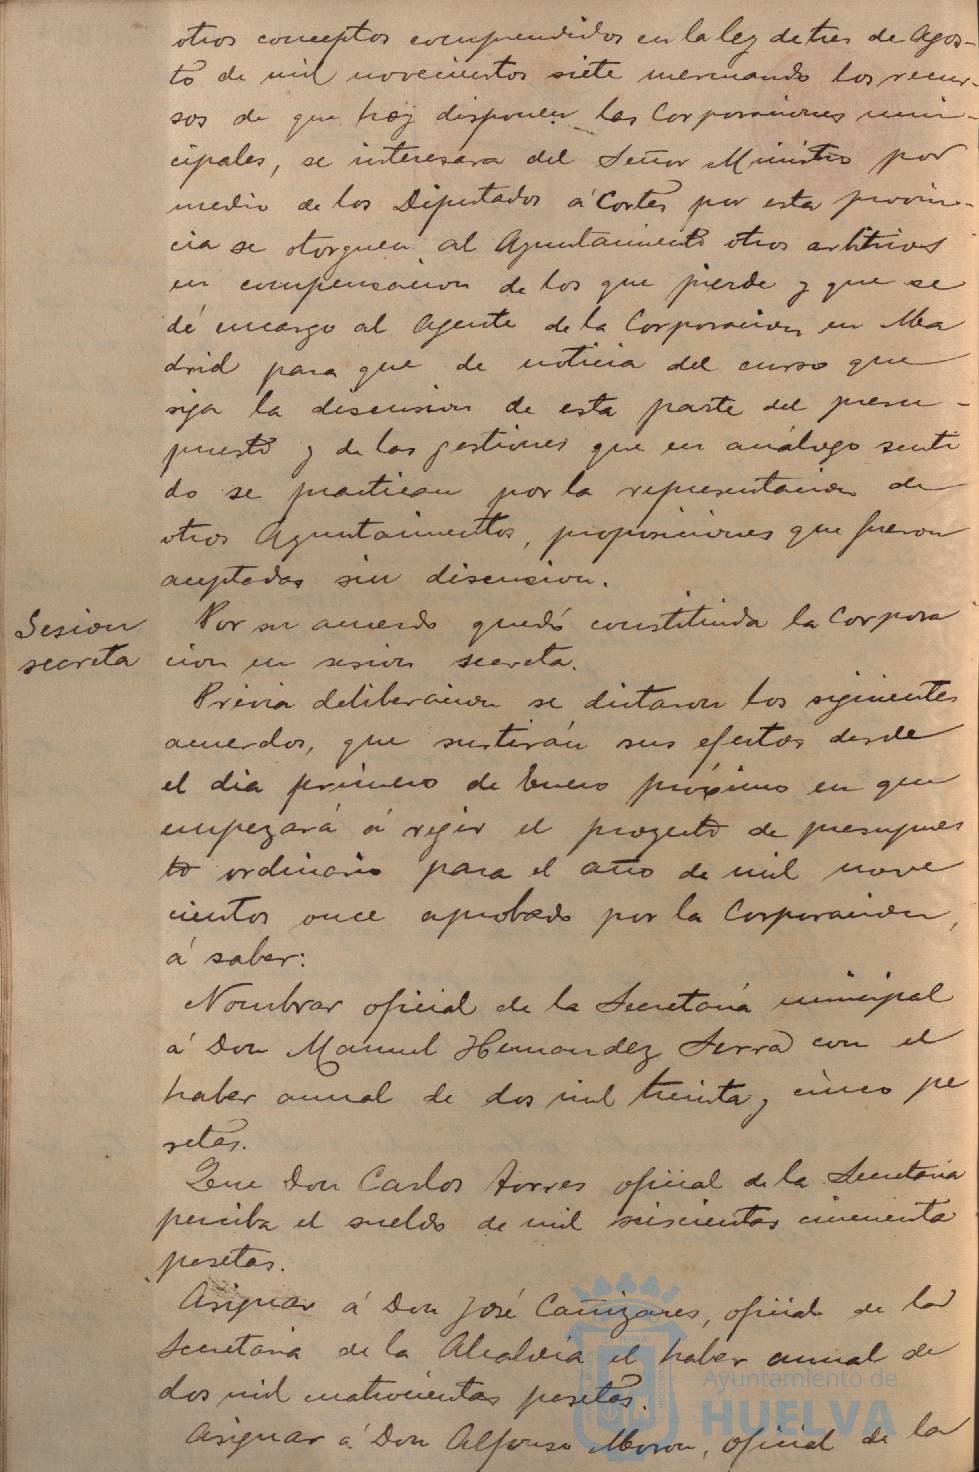 otros conceptos comprendidos en la ley de tres de Agos-
to de mil novecientos siete mermando los recur-
sos de que hoy disponen las Corporaciones muni-
cipales, se interesara del Señor Ministro por
medio de los Diputados á Cortes por esta provin-
cia se otorguen al Ayuntamiento otros arbitrios
en compensacion de los que pierde y que se
dé encargo al Agente de la Corporacion en Ma
drid para que de noticia del curso que
siga la discusion de esta parte del presu-
puesto y de las gestiones que en análogo senti
do se practican por la representacion de
otros Ayuntamientos, proposiciones que fueron
aceptadas sin discusion.
Sesion
secreta
Por su acuerdo quedó constituida la Corpora
cion en sesion secreta.
Previa deliberacion se dictaron los siguientes
acuerdos, que surtirán sus efectos desde
el dia primero de Enero próximo en que
empezará á regir el proyecto de presupues
to ordinario para el año de mil nove
cientos once aprobado por la Corporacion,
á saber:
Nombrar oficial de la Secretaría municipal
á Don Manuel Hernandez Serra con el
haber anual de dos mil treinta y cinco pe
setas.
Que Don Carlos Torres oficial de la Secretaria
perciba el sueldo de mil seiscientas cincuenta
pesetas.
Asignar á Don José Cañizares, oficial de la
Secretaria de la Alcaldía el haber anual de
dos mil cuatrocientas pesetas.
Asignar á Don Alfonso Moron, oficial de la
Ayuntamiento de
HUELVA